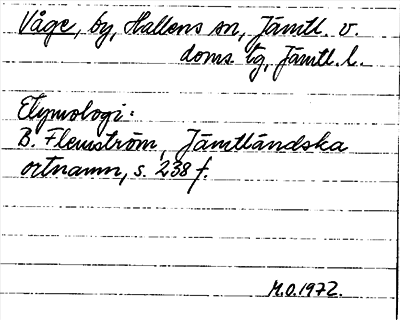 Våge, by, Hallens sn, Jämtl. v.
doms tg, Jämtl. l.
Etymologi:
B. Flemström, Jämtländska
ortnamn, s. 238 f.
M.O. 1972.